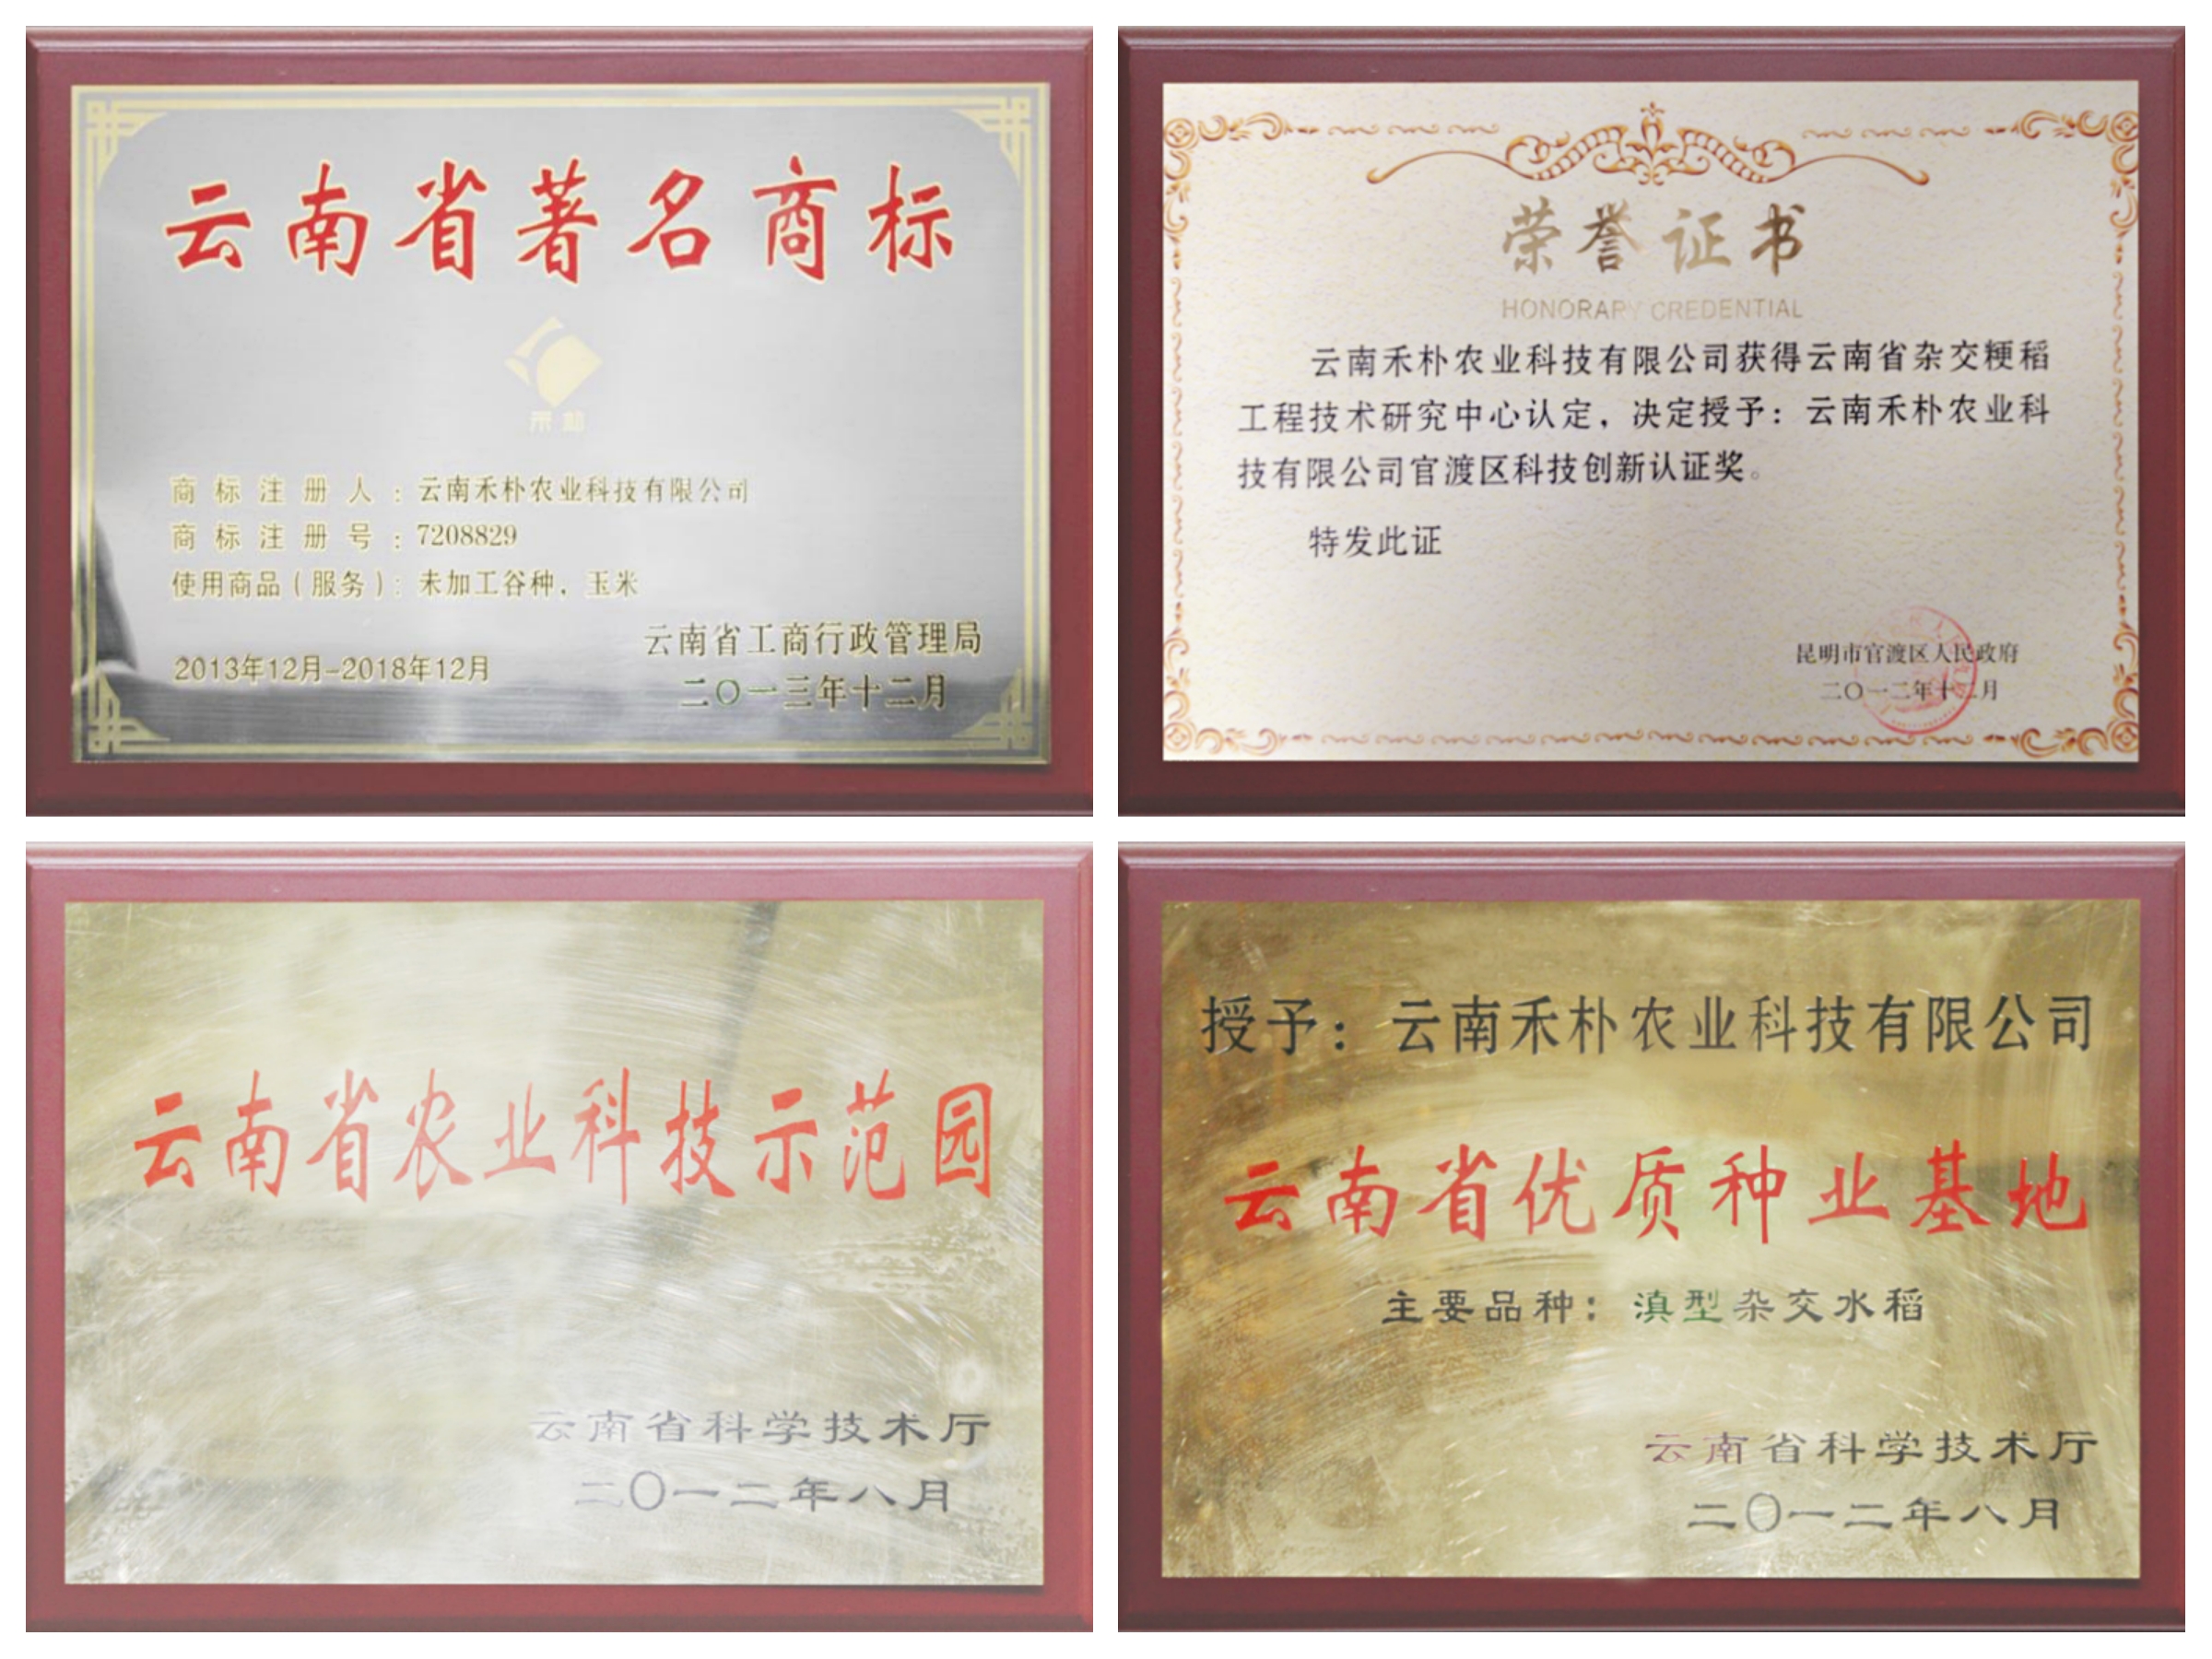 云南省著名商标
禾朴
商标注册人：云南禾朴农业科技有限公司
商标注册号：7208829
使用商品（服务）：未加工谷种，玉米
云南省工商行政管理局
2013年12月-2018年12月
二〇一三年十二月
荣誉证书
HONORARY CREDENTIAL
云南禾朴农业科技有限公司获得云南省杂交粳稻
工程技术研究中心认定，决定授予：云南禾朴农业科
技有限公司官渡区科技创新认证奖。
特发此证
昆明市官渡区人民政府
二〇一二年十二月
云南省农业科技示范园
云南省科学技术厅
二〇一二年八月
授予：云南禾朴农业科技有限公司
云南省优质种业基地
主要品种：滇型杂交水稻
云南省科学技术厅
二〇一二年八月